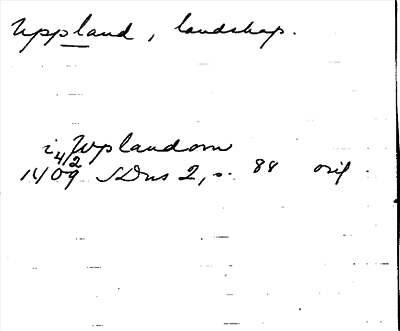 Uppland, landskap.
i Uplandom
4/2
1409 SDns 2, s. 88 orig.